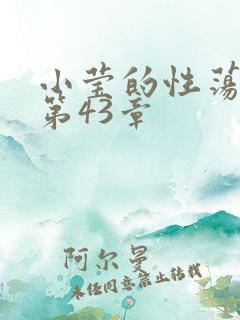 小莹的性荡
第43章
阿尔曼
未经同意禁止转载